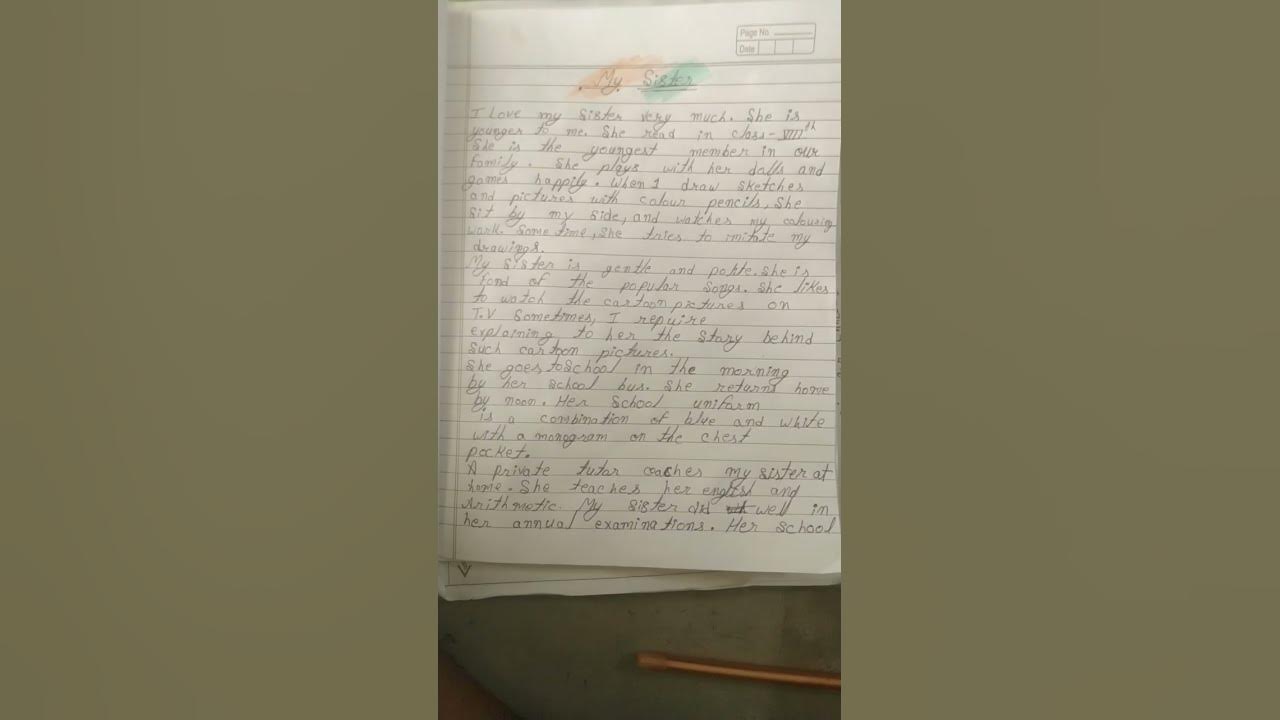 Page No.
Date
. My Sister
I Love my Sister very much. She is
younger to me. She read in class-VIIIth
She is the youngest member in our
family. She plays with her dolls and
games happily. When I draw sketches
and pictures with colour pencils, She
Sit by my side, and watches my colouring
work. Some time, She tries to imitate my
drawings.
My Sister is gentle and polite. She is
fond of the popular Songs. She likes
to watch the cartoon pictures on
T.V Sometimes, I repuire
explaining to her the Story behind
Such cartoon pictures.
She goes to School in the morning
by her School bus. She returns home
by noon. Her School uniform
is a combination of blue and white
with a monogram on the chest
pocket.
A private tutor coaches my sister at
home. She teaches her english and
Arithmetic. My Sister did well in
her annual examinations. Her School